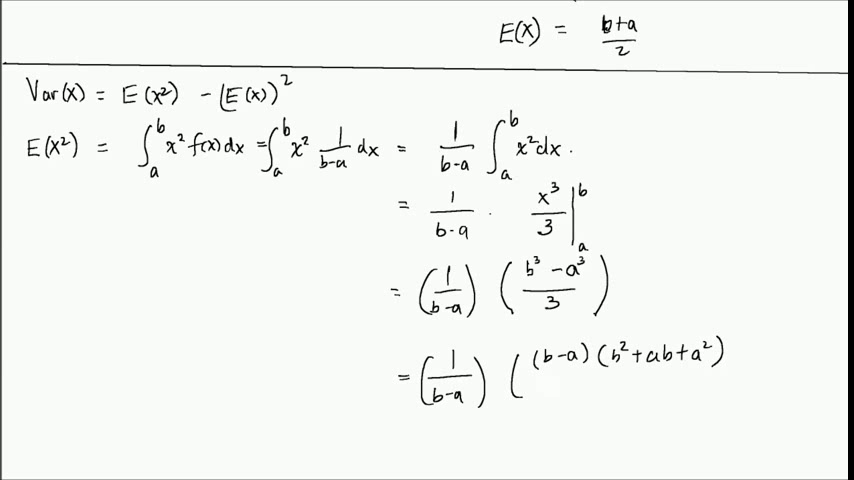 E(X) = b+a/2
Var(X) = E(X²) - (E(X))²
E(X²) = ∫_a^b x² f(x) dx = ∫_a^b x² 1/(b-a) dx = 1/(b-a) ∫_a^b x² dx.
= 1/(b-a) · x³/3 |_a^b
= (1/(b-a)) ((b³ - a³)/3)
= (1/(b-a)) ( (b-a) (b² + ab + a²)